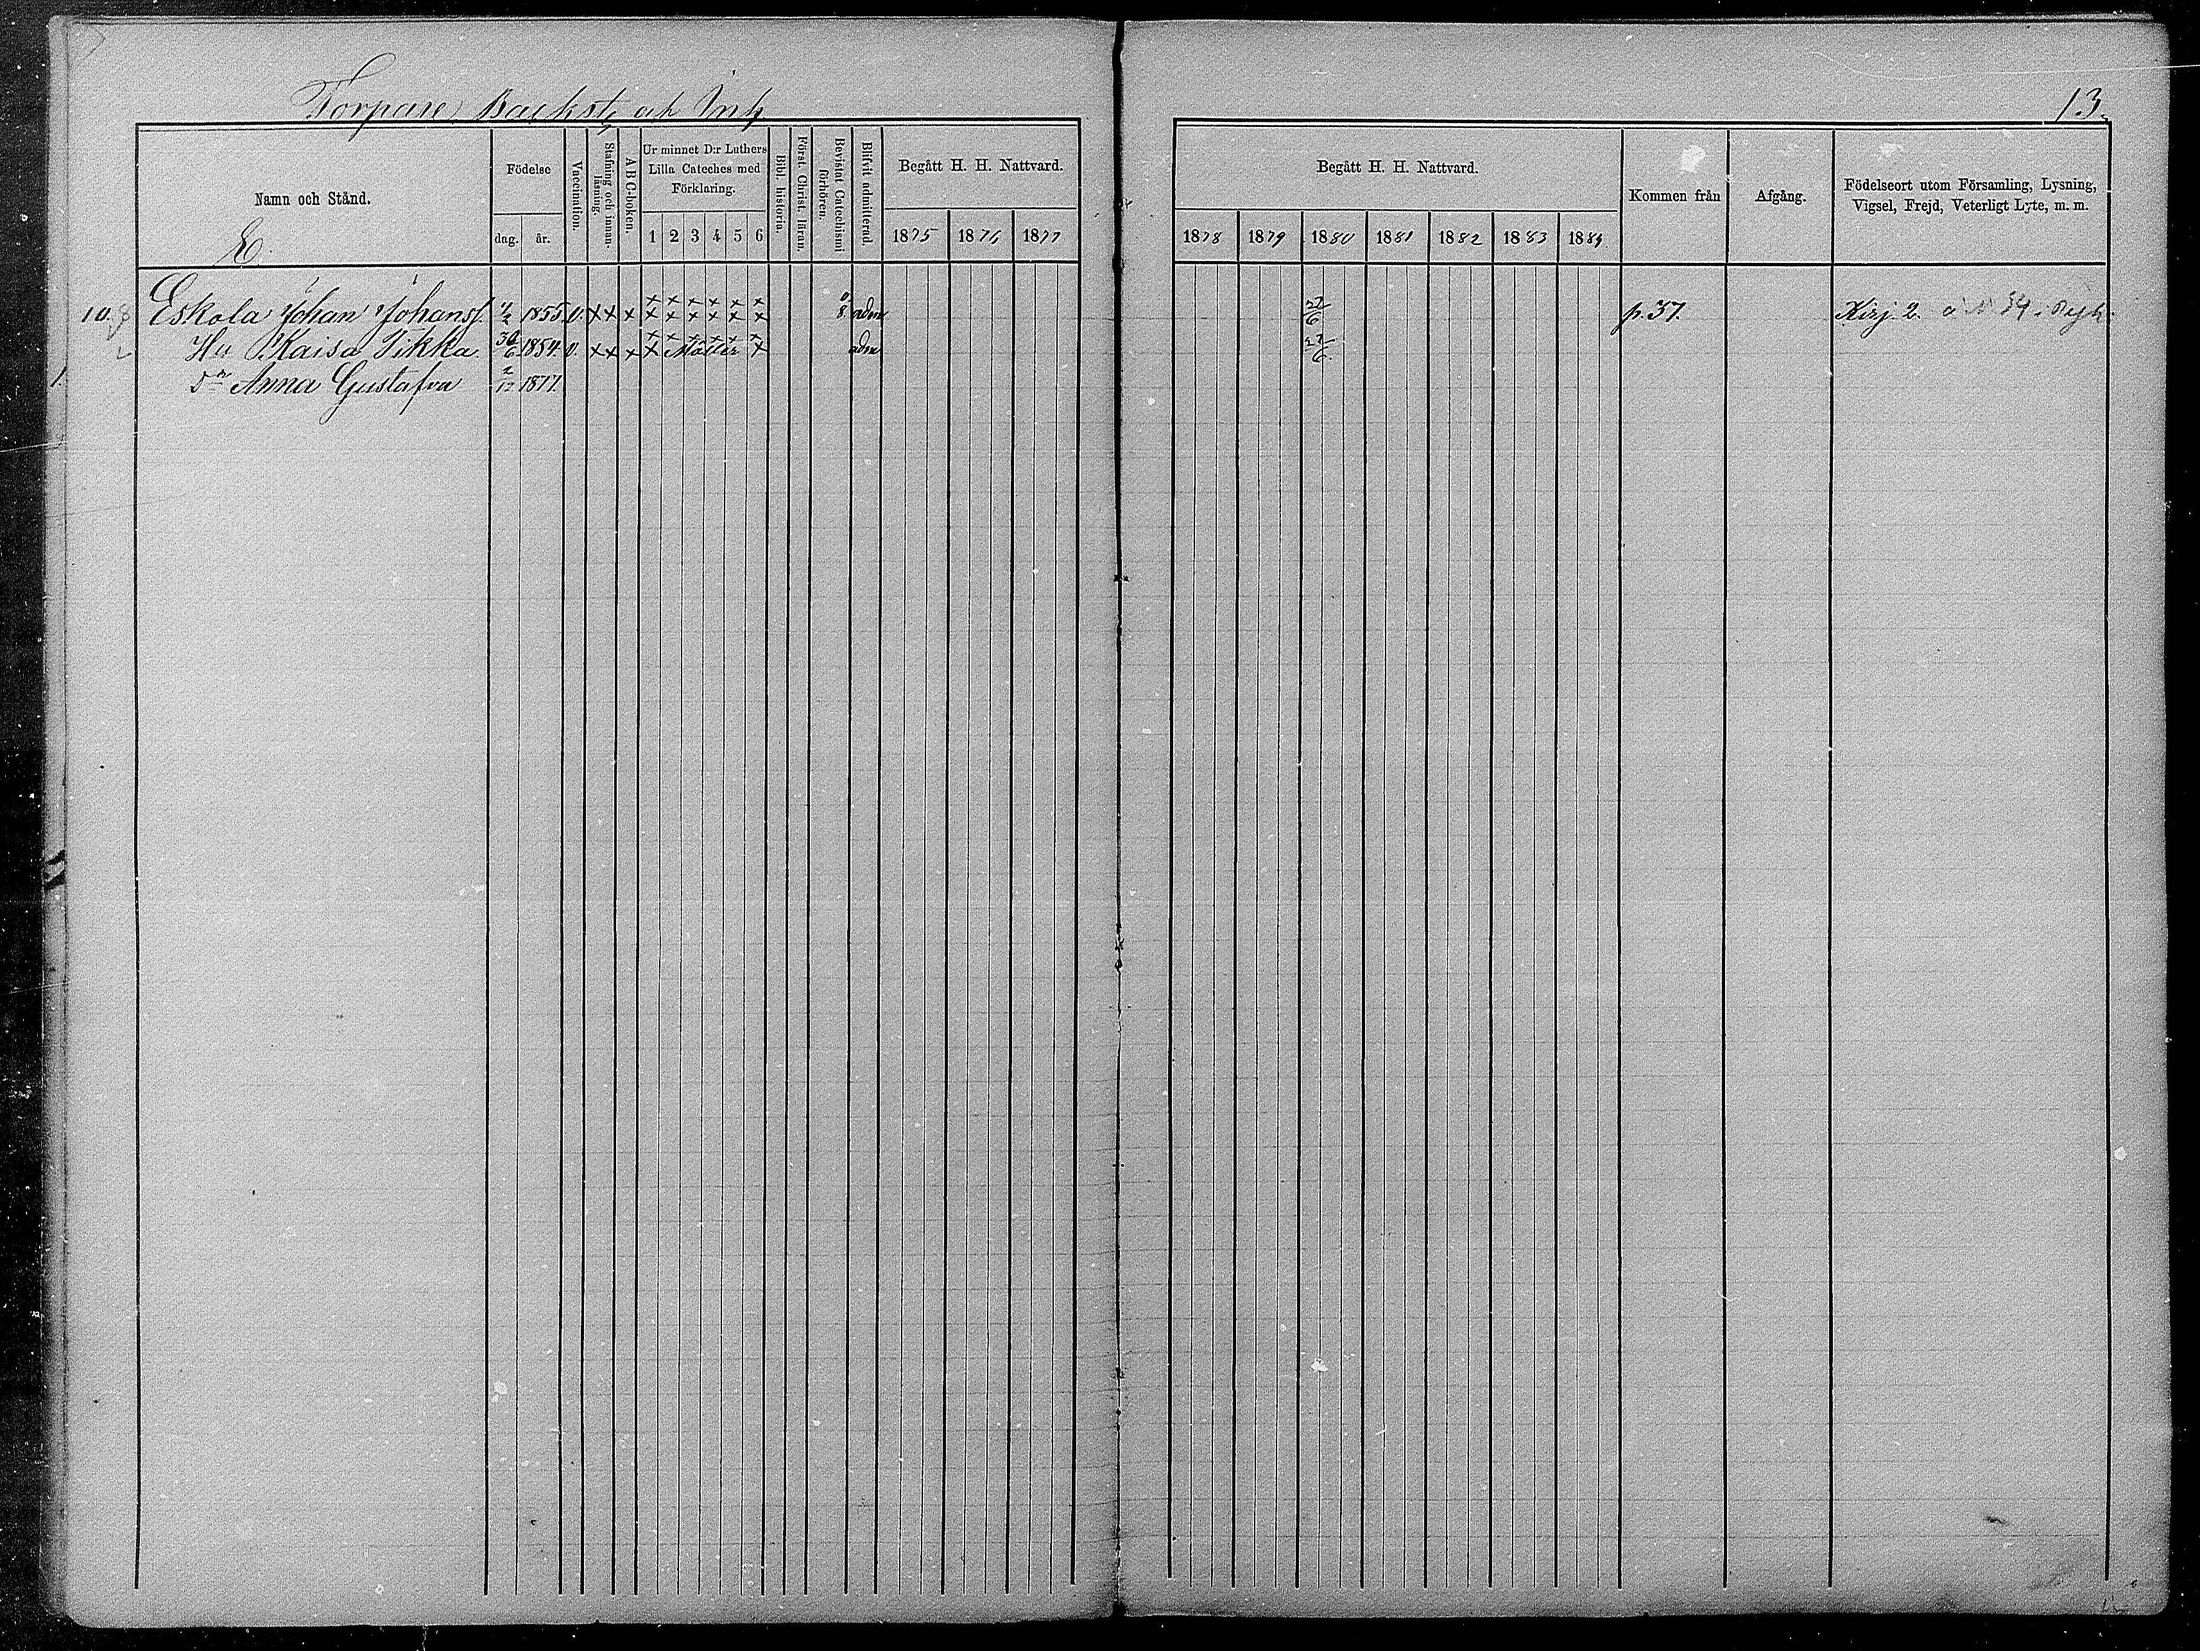 Torpare, Backst. och Inh.
13.
Namn och Stånd.
E.
Födelse
dag. år.
Vaccination.
Stafning och innanläsning.
A B C-boken.
Ur minnet D:r Luthers
Lilla Cateches med
Förklaring.
1 2 3 4 5 6
Bibl. historia.
Först. Christ. läran.
Bevistat Catechismi förhören.
Blifvit admitterad.
Begått H. H. Nattvard.
1875 1876 1877
Begått H. H. Nattvard.
1878 1879 1880 1881 1882 1883 1884
Kommen från
Afgång.
Födelseort utom Församling, Lysning,
Vigsel, Frejd, Veterligt Lyte, m. m.
10. Eskola Johan Johanss. 1855. v. x x x x x x x x x x x x x x x 8. adm 27/6 p. 37. Kirj. 2.
Hu Kaisa Pikka 30/6 1854. v. x x x x x x x x x x adm 27/6.
1. Dr Anna Gustafva 2/12 1877.